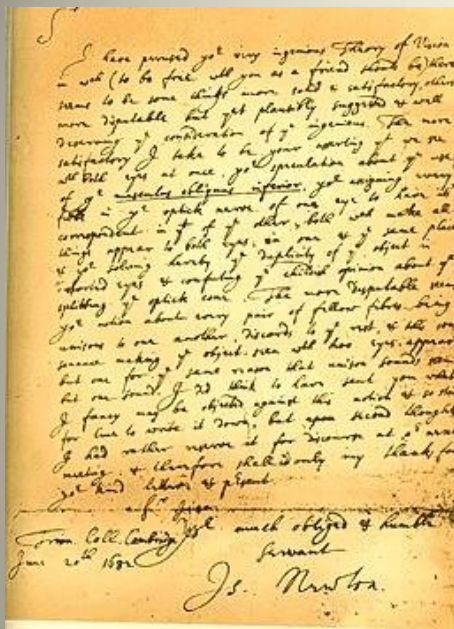 Sr
I have perused yor very ingenious Theory of Vision
in wch (to be free with you as a friend should be) there
seems to be some things more solid & satisfactory, others
more disputable but yet plausibly suggested & well
deserving ye consideration of ye ingenious. The more
satisfactory I take to be your asserting yt we see
wth both eyes at once, yor speculation about ye use
of ye musculus obliquus inferior, yor assigning every
fibre in ye optick nerve of one eye to have its
correspondent in yt of ye other, both wch make all
things appear to both eyes in one & ye same place
& yor solving hereby ye duplicity of ye object in
distorted eyes & confuting ye childish opinion about ye
splitting ye optick cone. The more disputable seems
yor notion about every pair of fellow fibres being
unisons to one another, discords to ye rest, & this conso-
nance making ye object seen with two eyes appear
but one for ye same reason that unison sounds seem
but one sound. I did think to have sent you what
I fancy may be objected against this notion & so staid
for time to write it down, but upon second thoughts
I had rather reserve it for discourse at or next
meeting, & therefore shall add only my thanks for
yor kind letter & present.
Sr
Trin. Coll. Cambridge Yor much obliged & humble
June 20th 1682 Servant
Is. Newton.